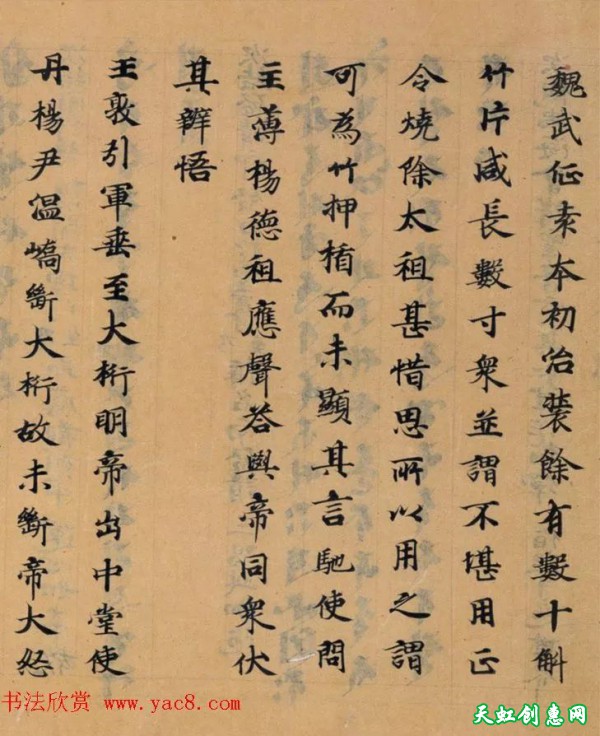 魏武征袁本初治裝餘有數十斛
竹片咸長數寸衆並謂不堪用正
令燒除太祖甚惜思所以用之謂
可為竹押楯而未顯其言馳使問
主薄楊德祖應聲荅與帝同衆伏
其辯悟
王敦引軍垂至大桁明帝出中堂使
丹楊尹温嶠斷大桁故未斷帝大怒
书法欣赏 www.yac8.com
天虹创惠网